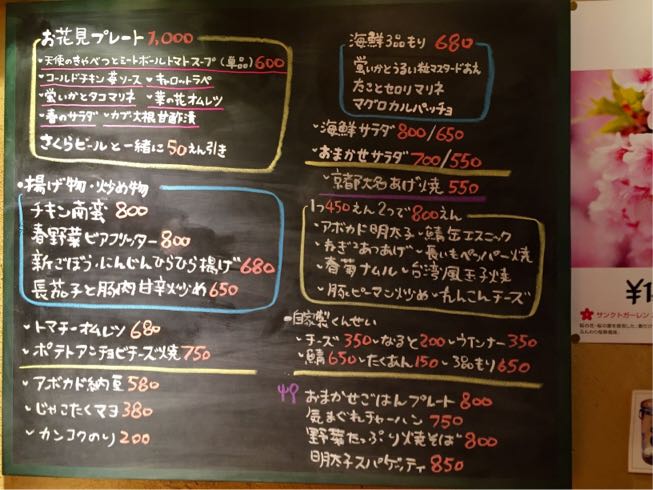 お花見プレート 1,000
・天使のきゃべつとミートボールトマトスープ(単品)600
・コールドチキン 苺ソース ・キャロットラペ
・蛍いかとタコマリネ ・菜の花オムレツ
・春のサラダ ・カブ大根甘酢漬
さくらビールと一緒に50えん引き
・揚げ物・炒め物
チキン南蛮 800
春野菜ビアフリッター 800
新ごぼう・にんじんひらひら揚げ 680
長茄子と豚肉甘辛炒め 650
・トマチーオムレツ 680
・ポテトアンチョビチーズ焼 750
・アボカド納豆 580
・じゃこたくマヨ 380
・カンコクのり 200
海鮮3品もり 680
蛍いかとうるい粒マスタードあえ
たことセロリマリネ
マグロカルパッチョ
・海鮮サラダ 800/650
・おまかせサラダ 700/550
・京都大名あげ焼 550
1つ450えん 2つで800えん
・アボカド明太子 ・鯖缶エスニック
・ねぎ2あつあげ ・長いもペッパー焼
・春菊ナムル ・台湾風玉子焼
・豚ピーマン炒め ・れんこんチーズ
・自家製くんせい
・チーズ350 ・なると200 ・ウインナー350
・鯖650 ・たくあん150 ・3品もり650
おまかせごはんプレート 800
気まぐれチャーハン 750
野菜たっぷり焼そば 800
明太子スパゲッティ 850
サンクトガーレン